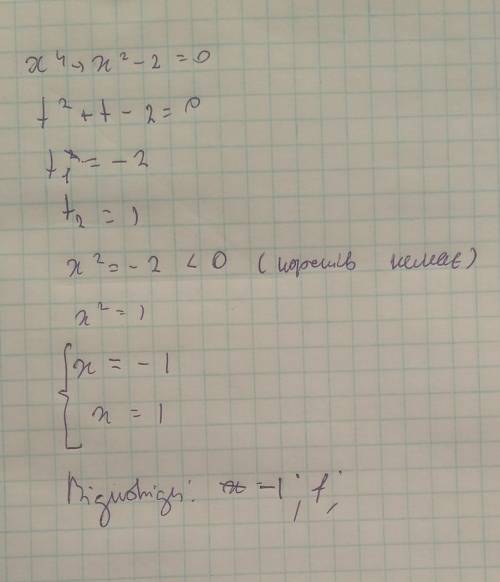 x⁴ + x² - 2 = 0
t² + t - 2 = 0
t₁ = -2
t₂ = 1
x² = -2 < 0 (коренів немає)
x² = 1
x = -1
x = 1
Відповідь: -1; 1;